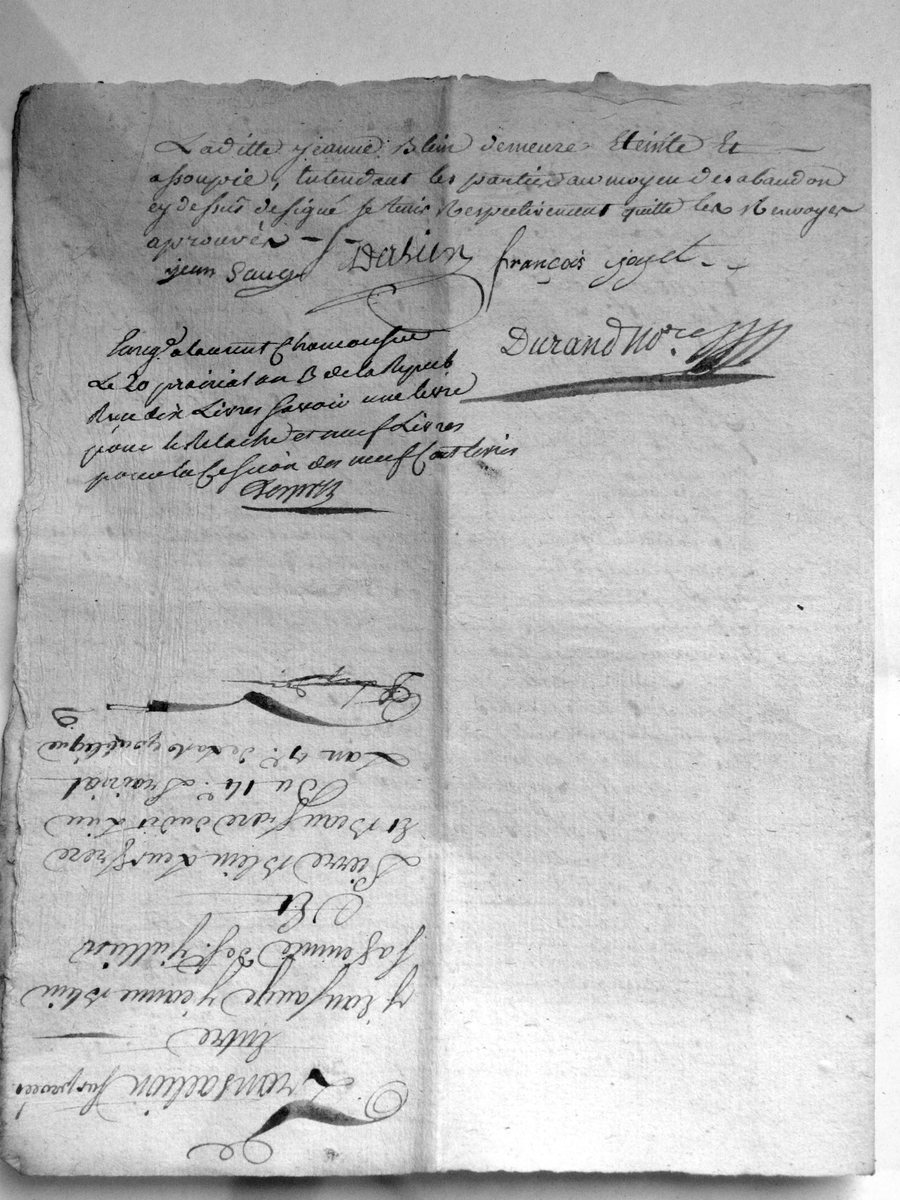 Laditte jeanne Blein demeure Eteinte Et
assoupie, entendant les parties au moyen des abandon
cy dessus designé se tenir Respectivement quitte les Renvoyes
aprouvés
jean Sauge Dabien françois jayet
Durand Nore
Enregé a laurent Chamousset
Le 20 prairial an 3 de la Repub
Reçu dix Livres Savoir une livre
pour le Relache et neuf Livres
pour la Cession des neuf Cent livres
Transaction sur procès
Entre
Jean Sauge Jeanne Blein
sa femme de St Julien
Et
Pierre Blein Leur frere
Et Beaufrere dudit Lieu
Du 14e Prairial
Lan 3e de La republique